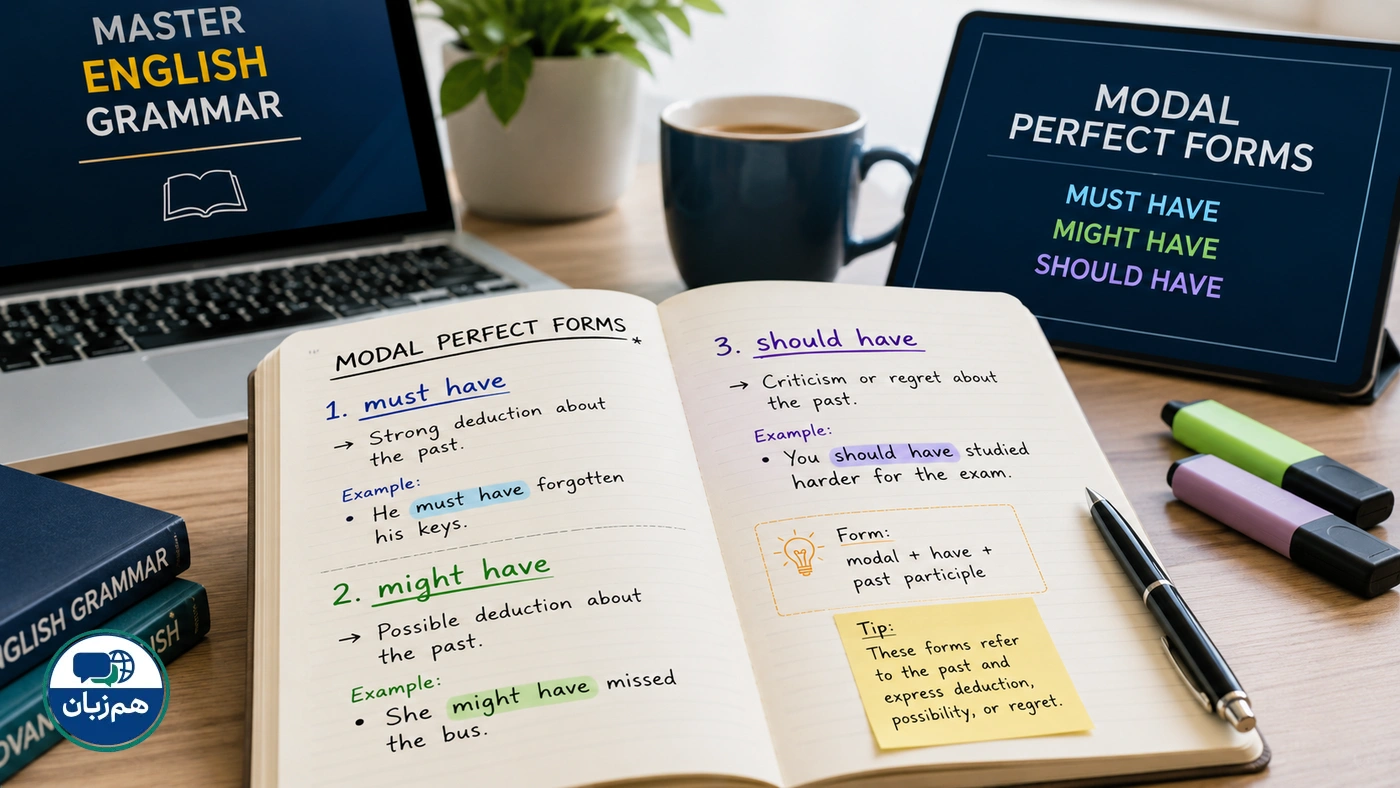 MASTER
ENGLISH
GRAMMAR
MODAL
PERFECT FORMS
MUST HAVE
MIGHT HAVE
SHOULD HAVE
MODAL PERFECT FORMS *
1. must have
→ Strong deduction about
the past.
Example:
• He must have forgotten
his keys.
2. might have
→ Possible deduction about
the past.
Example:
• She might have missed
the bus.
3. should have
→ Criticism or regret about
the past.
Example:
• You should have studied
harder for the exam.
Form:
modal + have +
past participle
Tip:
These forms refer
to the past and
express deduction,
possibility, or regret.
NGLISH GRAMMAR
هم‌زبان